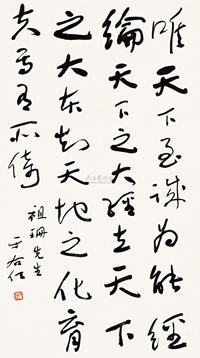 唯天下至誠為能經
綸天下之大經立天下
之大本知天地之化育
夫焉有所倚
祖珊先生
于右任